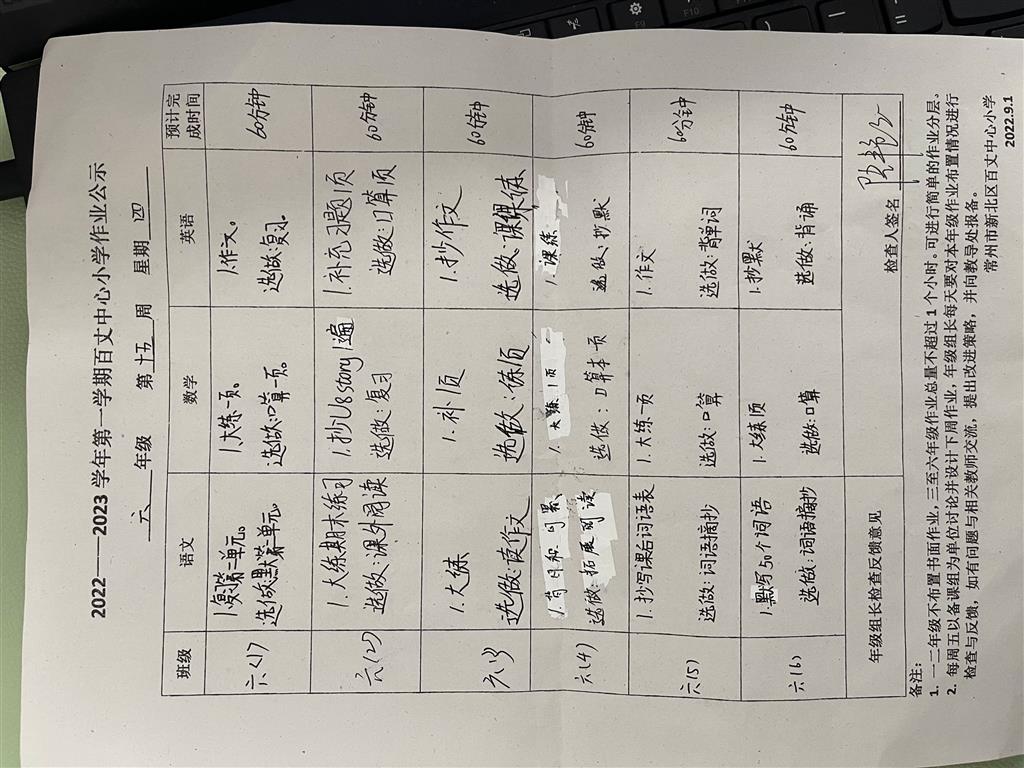 2022——2023 学年第一学期百丈中心小学作业公示
六 年级 第 十五 周 星期 四
班级 语文 数学 英语 预计完成时间
六(1) 1.复第二单元。 1.大练一页。 1.作文。 60分钟
选做:默第一单元 选做:口算一页。 选做:复习.
六(2) 1.大练期末练习 1.抄U8 story 1遍 1.补充习题1页 60分钟
选做:课外阅读 选做:复习 选做:口算1页
六(3) 1.大练 1.补1页 1.抄作文 60分钟
选做:读作文 选做:练1页 选做:课课练
六(4) 1. 日积月累 1.大练1页 1.课练 60分钟
选做:拓展阅读 选做:口算本一页 选做:抄默
六(5) 1.抄写课后词语表 1.大练一页 1.作文 60分钟
选做:词语摘抄 选做:口算 选做:背单词
六(6) 1.默写50个词语 1.大练1页 1.抄默 60分钟
选做:词语摘抄 选做:口算 选做:背诵
年级组长检查反馈意见 检查人签名
备注:
1. 一二年级不布置书面作业,三至六年级作业总量不超过 1 个小时。可进行简单的作业分层。
2. 每周五以备课组为单位讨论并设计下周作业,年级组长每天要对本年级作业布置情况进行
检查与反馈,如有问题与相关教师交流,提出改进策略,并向教导处报备。
常州市新北区百丈中心小学
2022.9.1